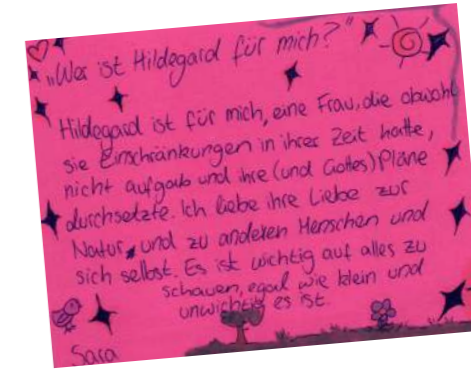 „Wer ist Hildegard für mich?"
Hildegard ist für mich, eine Frau, die obwohl
sie Einschränkungen in ihrer Zeit hatte,
nicht aufgab und ihre (und Gottes) Pläne
durchsetzte. Ich liebe ihre Liebe zur
Natur, und zu anderen Menschen und
sich selbst. Es ist wichtig auf alles zu
schauen, egal wie klein und
unwichtig es ist.
Sara